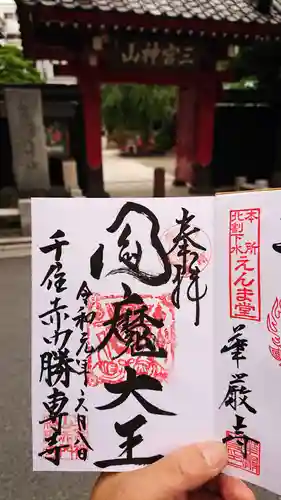 三宮神山
奉拝
閻魔大王
令和元年六月八日
千住赤門勝専寺
本所
北割下水
えんま堂
華厳寺